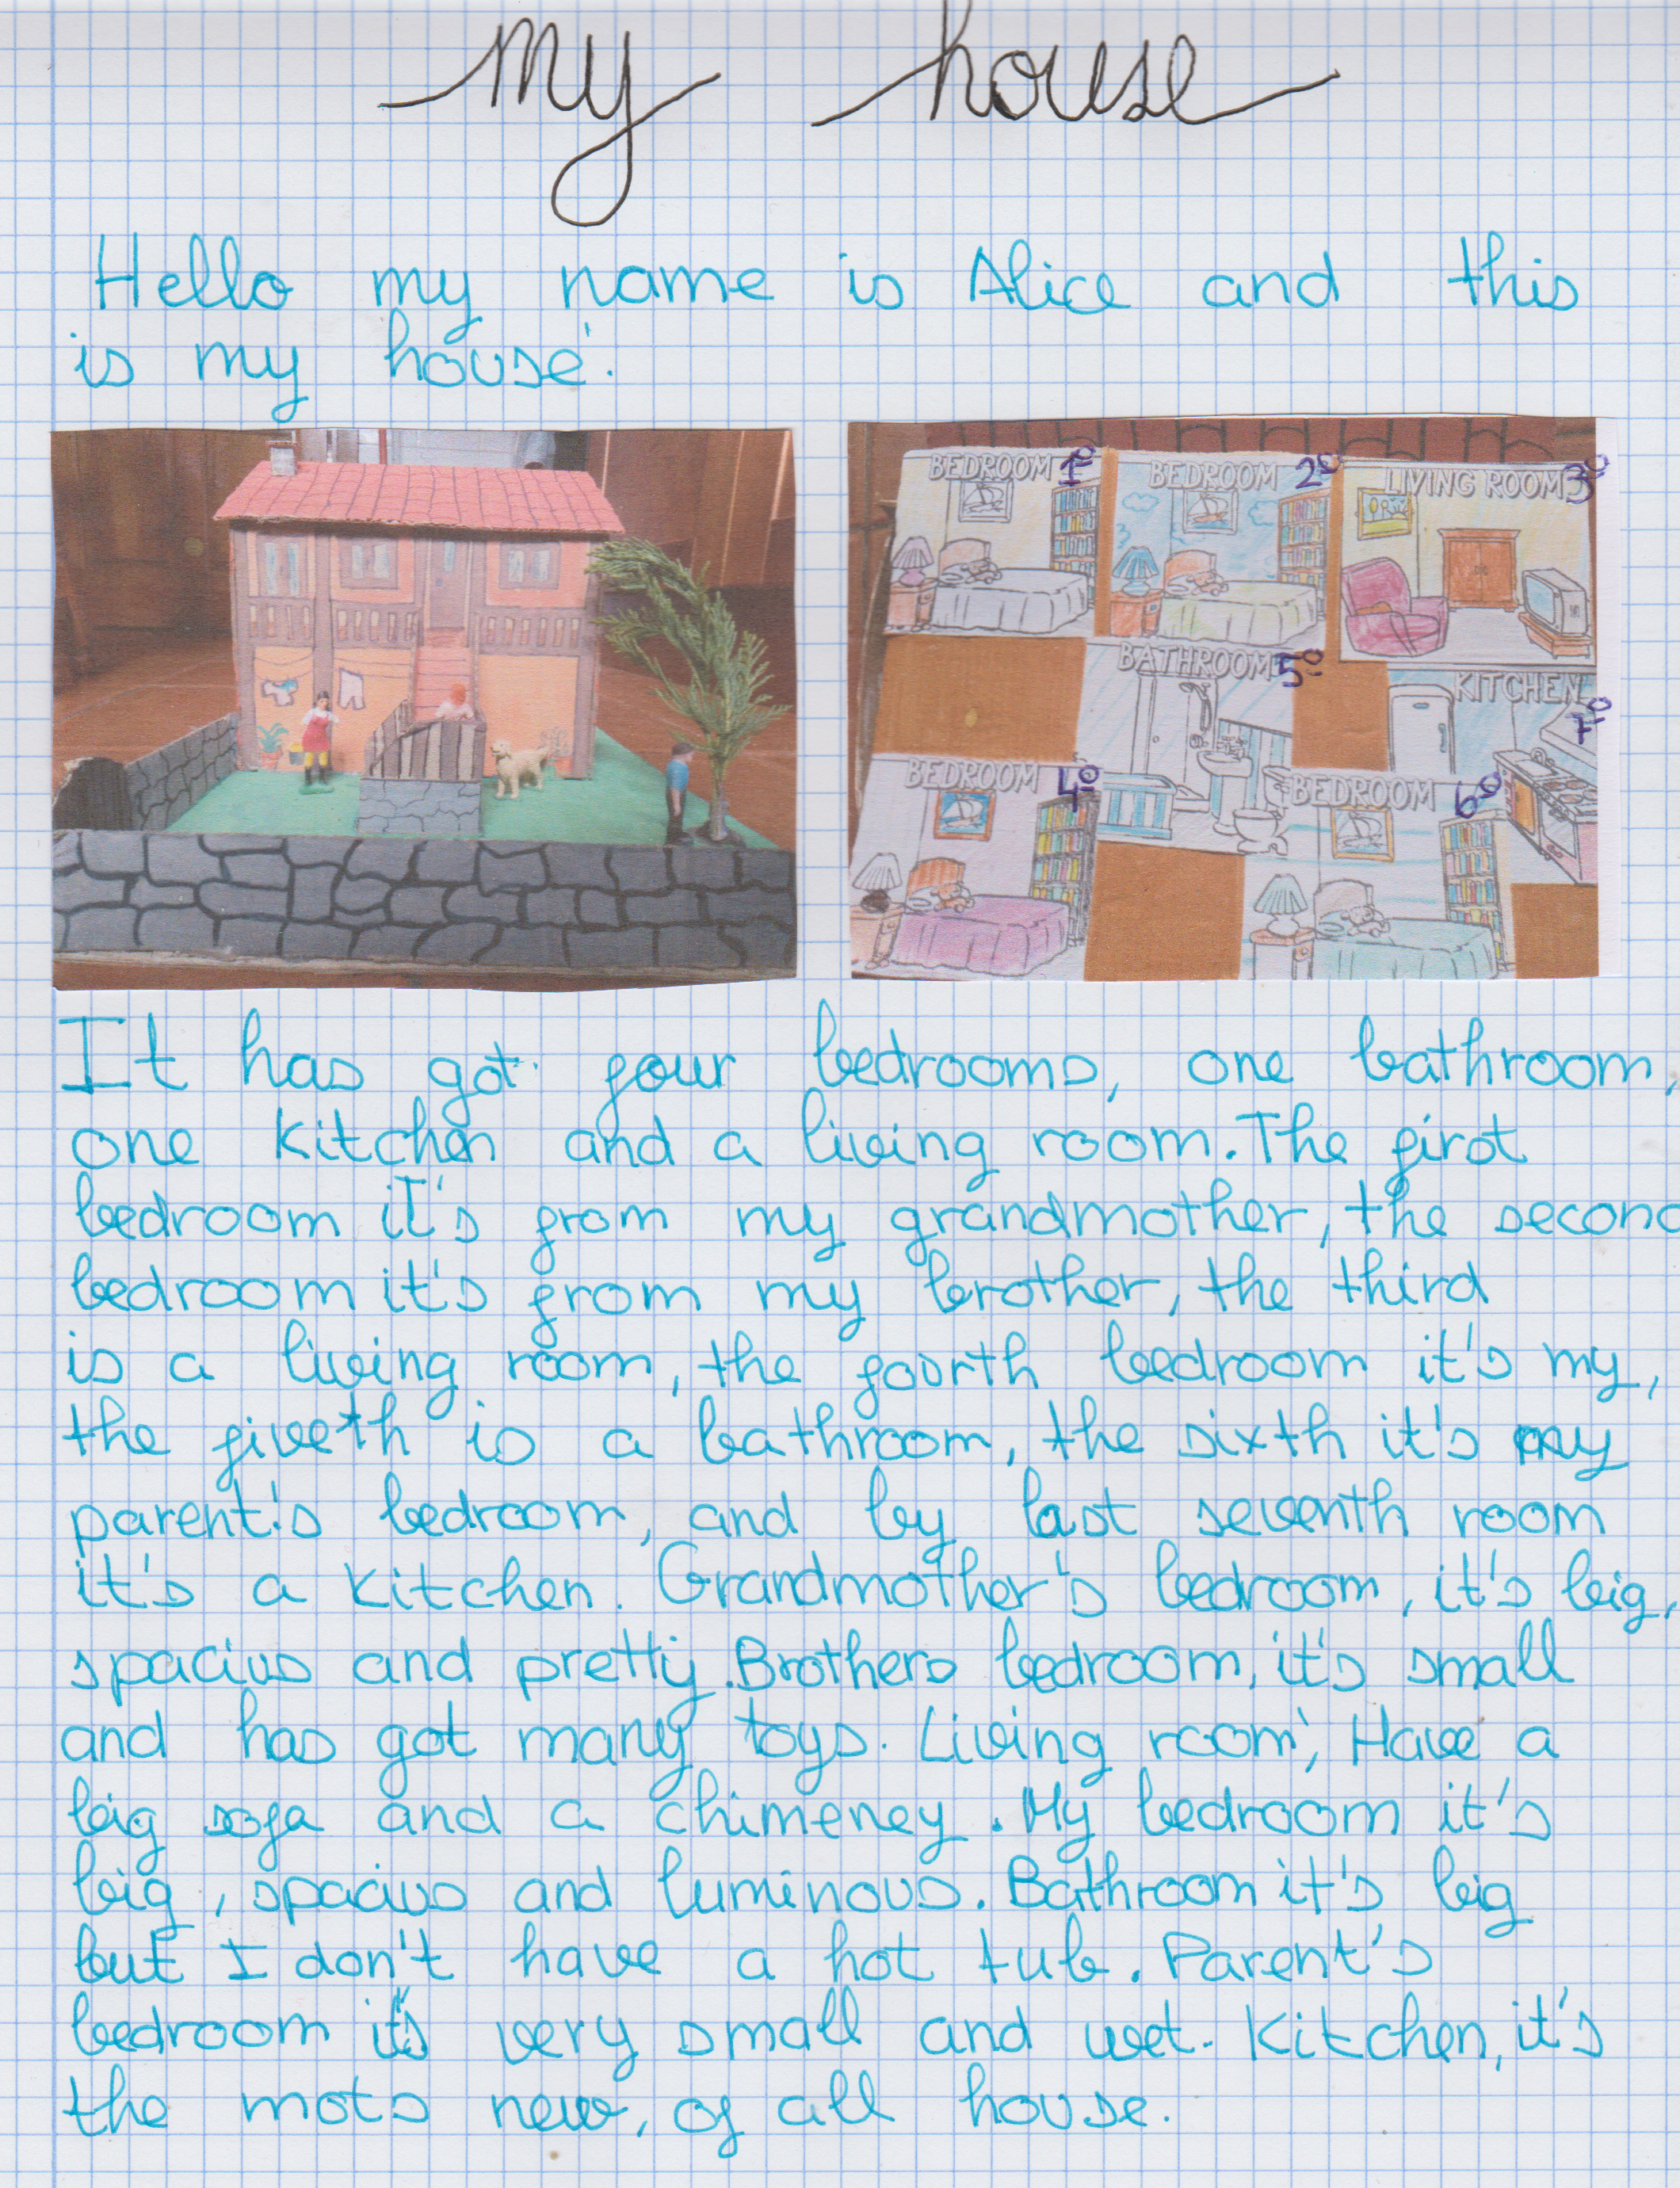 my house
Hello my name is Alice and this
is my house.
BEDROOM 1º
BEDROOM 2º
LIVING ROOM 3º
BATHROOM 5º
KITCHEN 7º
BEDROOM 4º
BEDROOM 6º
It has got four bedrooms, one bathroom,
one kitchen and a living room. The first
bedroom it's from my grandmother, the second
bedroom it's from my brother, the third
is a living room, the fourth bedroom it's my,
the fiveth is a bathroom, the sixth it's my
parent's bedroom, and by last seventh room
it's a kitchen. Grandmother's bedroom, it's big,
spacius and pretty. Brothers bedroom, it's small
and has got many toys. Living room, Have a
big sofa and a chimeney. My bedroom it's
big, spacius and luminous. Bathroom it's big
but I don't have a hot tub. Parent's
bedroom it's very small and wet. Kitchen, it's
the mots new, of all house.